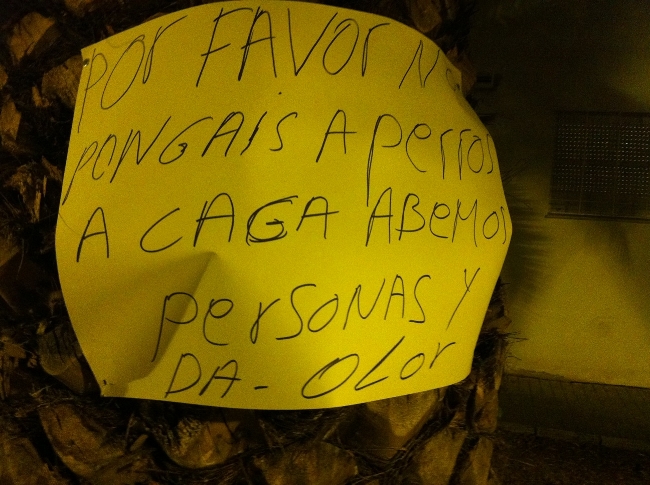 POR FAVOR NO
PONGAIS A PERROS
A CAGA ABEMOS
PERSONAS Y
DA- OLOR